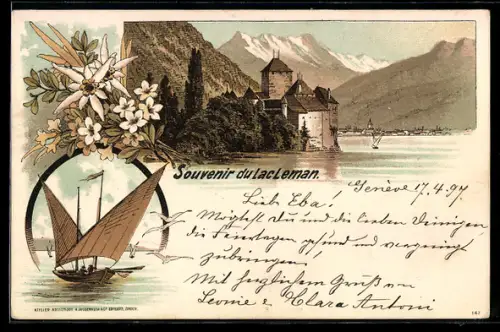 Souvenir du Lac Leman.
Genève 17.4.97
Lieb. Eba!
Möchtest Du und die lieben Deinigen
die Feiertage gesund und vergnügt
zubringen!
Mit herzlichem Gruß von
Leonie & Clara Antoni